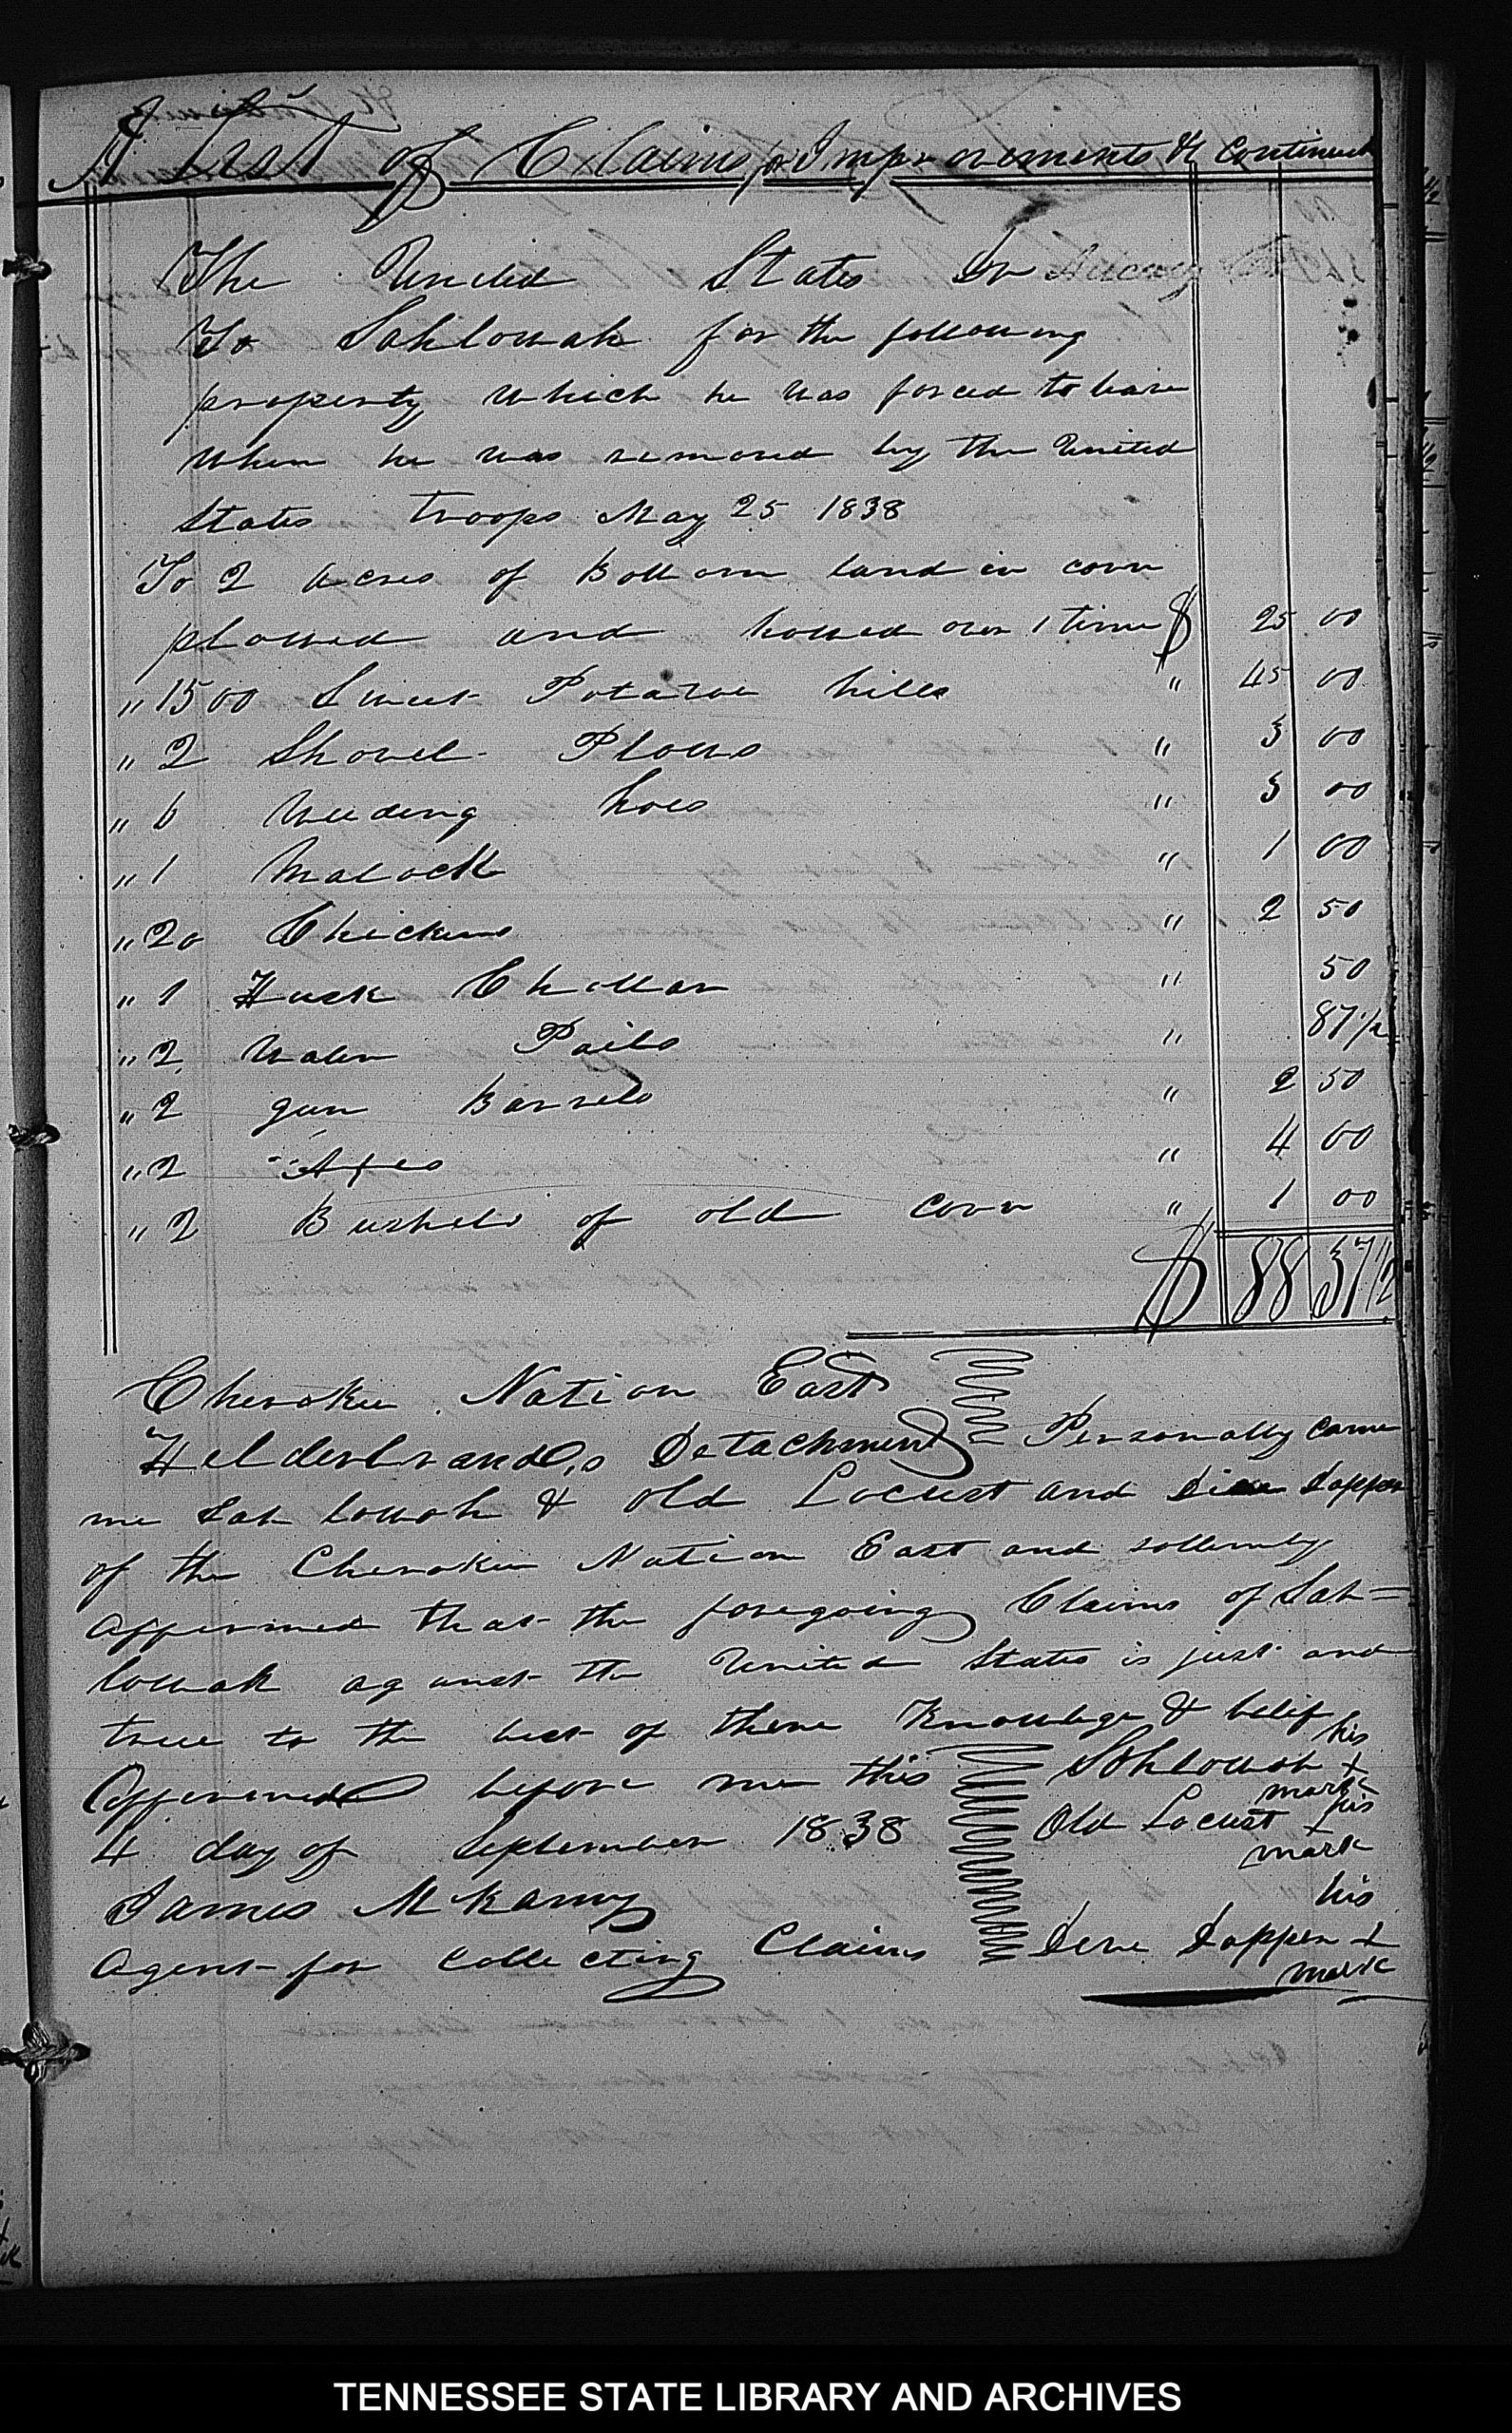 A List of Claims for Improvements & Continued
The United States Dr
To Sahlowah for the following
property which he was forced to leave
when he was removed by the United
States troops May 25 1838
To 2 acres of Bottom land in corn
plowed and howed over 1 time $ 25 00
" 1500 Sweet Potatoe hills " 45 00
" 2 Shovel Plows " 3 00
" 6 Weeding hoes " 3 00
" 1 Matock " 1 00
" 20 Chickens " 2 50
" 1 Husk Chollar " 50
" 2 Water Pails " 87 1/2
" 2 gun Barrels " 2 50
" 2 Axes " 4 00
" 2 Bushels of old corn " 1 00
$ 88 37 1/2
Cherokee Nation East
Helderbrands Detachment Personally came
me Sah lowah & Old Locust and Dapper
of the Cherokee Nation East and sollemnly
affirmed that the foregoing Claims of Sah=
lowah against the United States is just and
true to the best of there Knowledge & belif
his
Affirmed before me this Sahlowah +
mark
his
4 day of September 1838 Old Locust +
mark
James McKamy his
Agent for Collecting Claims Dapper +
mark
TENNESSEE STATE LIBRARY AND ARCHIVES